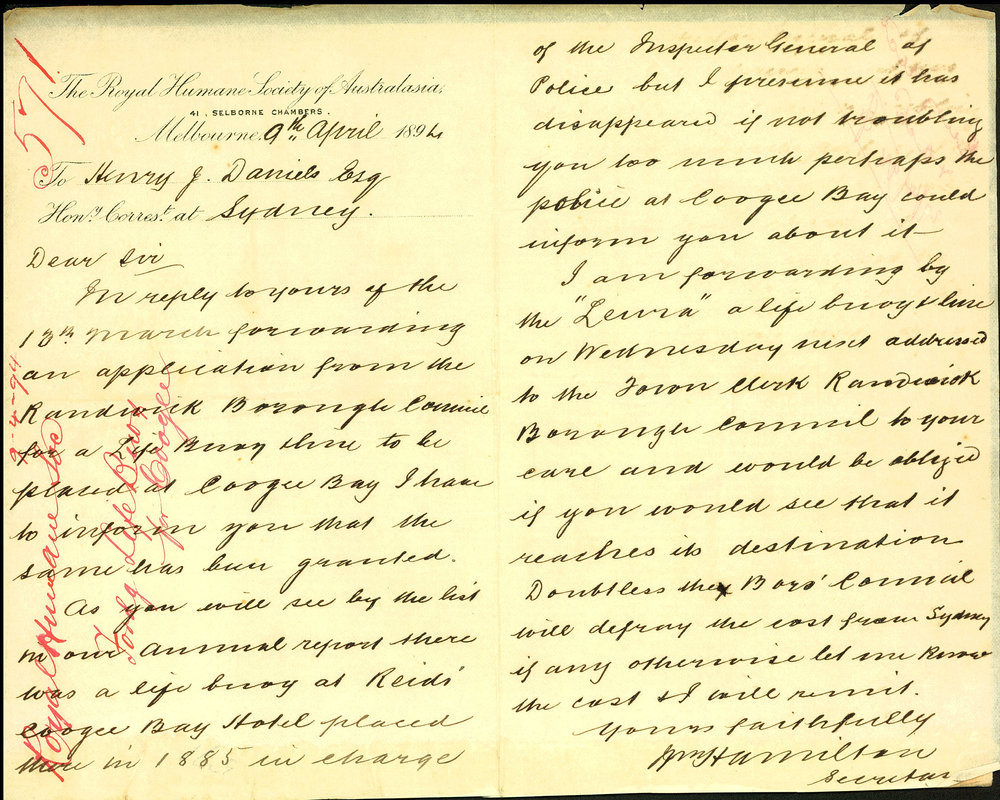 571
The Royal Humane Society of Australasia,
41, SELBORNE CHAMBERS.
Melbourne, 9th April 1894
To Henry J. Daniels Esq
Hony. Correst. at Sydney.
Dear Sir
In reply to yours of the
13th March forwarding
an application from the
Randwick Borough Council
for a Life Buoy & line to be
placed at Coogee Bay I have
to inform you that the
same has been granted.
As you will see by the list
in our annual report there
was a life buoy at Reids'
Coogee Bay Hotel placed
there in 1885 in charge
of the Inspector General of
Police but I presume it has
disappeared if not troubling
you too much perhaps the
police at Coogee Bay could
inform you about it
I am forwarding by
the "Leura" a life buoy & line
on Wednesday next addressed
to the Town Clerk Randwick
Borough Council to your
care and would be obliged
if you would see that it
reaches its destination
Doubtless the Boro' Council
will defray the cost from Sydney
if any otherwise let me know
the cost & I will remit.
Yours faithfully
Wm Hamilton
Secretary
Royal Humane Soc
9-4-94
Life Buoy
for Coogee